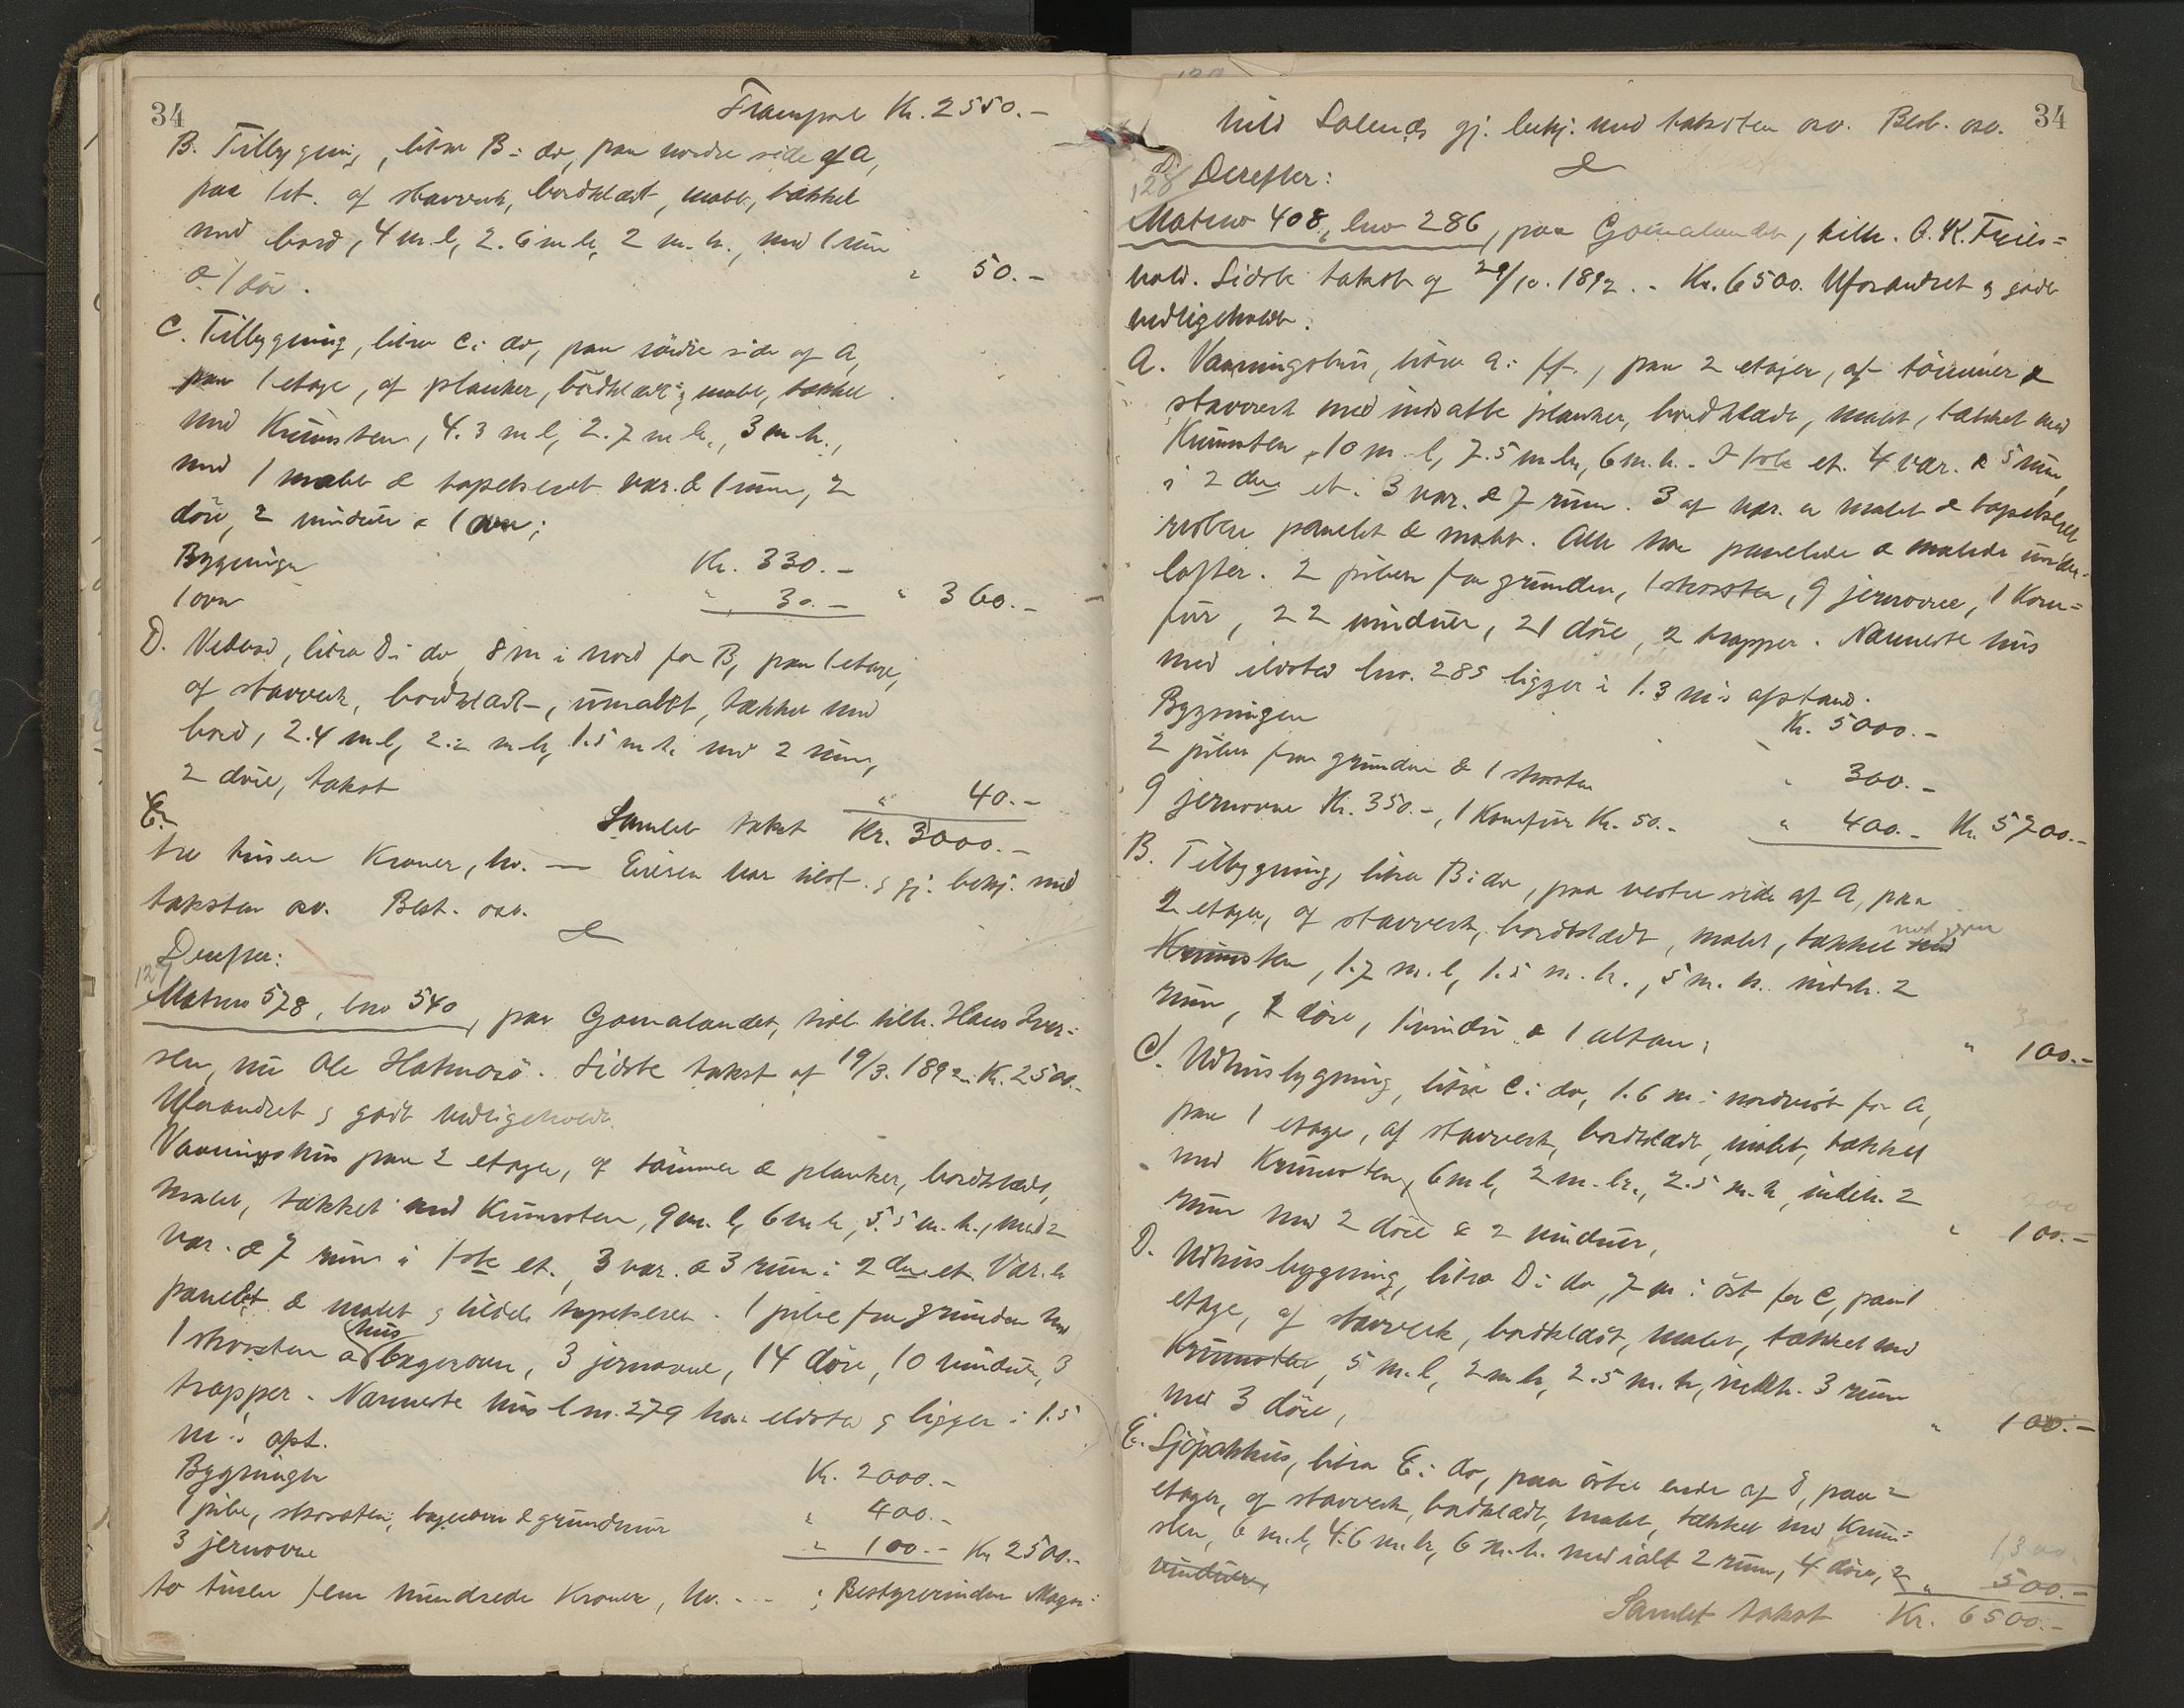 34
Transport Kr. 2550.-
B. Tilbygning, litra B: do, paa nordre side af A,
paa 1 et. af stavverk, bordklædt, malt, tækket
med bord, 4 m. l, 2.6 m. br, 2 m. h., med 1 rum
& 1 dör. " 50.-
C. Tilbygning, litra C: do, paa söndre side af A,
paa 1 etage, af planker, bordklædt & malt, tækket
med Krumsten, 4.3 m l, 2.7 m br., 3 m h.,
med 1 malet & tapetseret vær. & 1 rum, 2
döre, 2 vinduer & 1 ovn;
Bygningen Kr. 330.-
1 ovn " 30.- " 360.-
D. Vedbod, litra D: do, 8 m i nord for B, paa 1 etage,
af stavverk, bordklædt, umalet, tækket med
bord, 2.4 m. l, 2.2 m. br, 1.5 m h. med 2 rum,
2 döre, takst " 40.-
Samlet takst Kr. 3000.-
tre tusen Kroner, hv. — Eieren var tilst. & gj. bekj. med
taksten osv. Best. osv.
Derefter:
127
Matrno 578, bno 540, paa Gomalandet, tidl. tilh. Hans Iver-
sen, nu Ole Hatmosö. Sidste takst af 19/3. 1892: Kr. 2500.-
Uforandret & godt vedligeholdt.
Vaaningshus paa 2 etager, af tömmer & planker, bordklædt,
malet, tækket med Krumsten, 9 m. l, 6 m br, 5.5 m. h., med 2
vær. & 7 rum i 1ste et., 3 vær. & 3 rum i 2den et. Vær. er
panelet & malet & tildels tapetseret. 1 pibe fra grunden med
1 skorsten & bagerovn, 3 jernovne, 14 döre, 10 vinduer, 3
hus
trapper. Nærmeste hus bno. 279 har ildsted & ligger i 1.5
m.s afst.
Bygningen Kr. 2000.-
1 pibe, skorsten, bagerovn & grundmur " 400.-
3 jernovne " 100.- Kr 2500.-
to tusen fem hundrede Kroner, hv. - - ; Bestyrerinden Magn-
34
hild Solends gj. bekj. med taksten osv. Best. osv.
Derefter:
128
Matrno 408, bno 286, paa Gomalandet, tilh. O. K. Fries-
vold. Sidste takst af 29/10. 1892. - Kr. 6500. Uforandret & godt
vedligeholdt.
A. Vaaningshus, litra A: ff., paa 2 etager, af tömmer &
stavverk med indsatte planker, bordklædt, malet, tækket med
Krumsten, 10 m. l, 7.5 m br, 6 m. h. - I 1ste et. 4 vær. & 5 rum,
i 2den et. 3 vær. & 7 rum. 3 af vær. er malet & tapetseret
resten panelet & malet. Alle har panelede & malede under-
lofter. 2 piber fra grunden, 1 skorsten, 9 jernovne, 1 Kom-
fur, 22 vinduer, 21 döre, 2 trapper. Nærmeste hus
med ildsted bno. 285 ligger i 1.3 m.s afstand.
Bygningen Kr. 5000.-
2 piber fra grunden & 1 skorsten " 300.-
9 jernovne Kr. 350.-, 1 Komfur Kr. 50.- " 400.- Kr. 5700.-
B. Tilbygning, litra B: do, paa vestre side af A, paa
2 etager, af stavverk, bordklædt, malet, tækket med
Krumsten, 1.7 m. l, 1.5 m. br., 5 m. h. indeh. 2
rum, 2 döre, 1 vindu & 1 altan; " 100.-
C. Udhusbygning, litra C: do, 1.6 m i nordvest for A,
paa 1 etage, af stavverk, bordklædt, malet, tækket
med Krumsten, 6 m l, 2 m. br., 2.5 m. h, indeh. 2
rum med 2 döre & 2 vinduer, " 100.-
D. Udhusbygning, litra D: do, 7 m i öst for C, paa 1
etage, af stavverk, bordklædt, malet, tækket med
Krumsten, 5 m. l, 2 m br, 2.5 m. h, indeh. 3 rum
med 3 döre, " 100.-
E. Sjöpakhus, litra E: do, paa östre ende af D, paa 2
etager, af stavverk, bordklædt, malet, tækket med Krum-
sten, 6 m. l, 4.6 m. br, 6 m. h. med ialt 2 rum, 4 döre, 2
vinduer, 1300. " 500.-
Samlet takst Kr. 6500.-